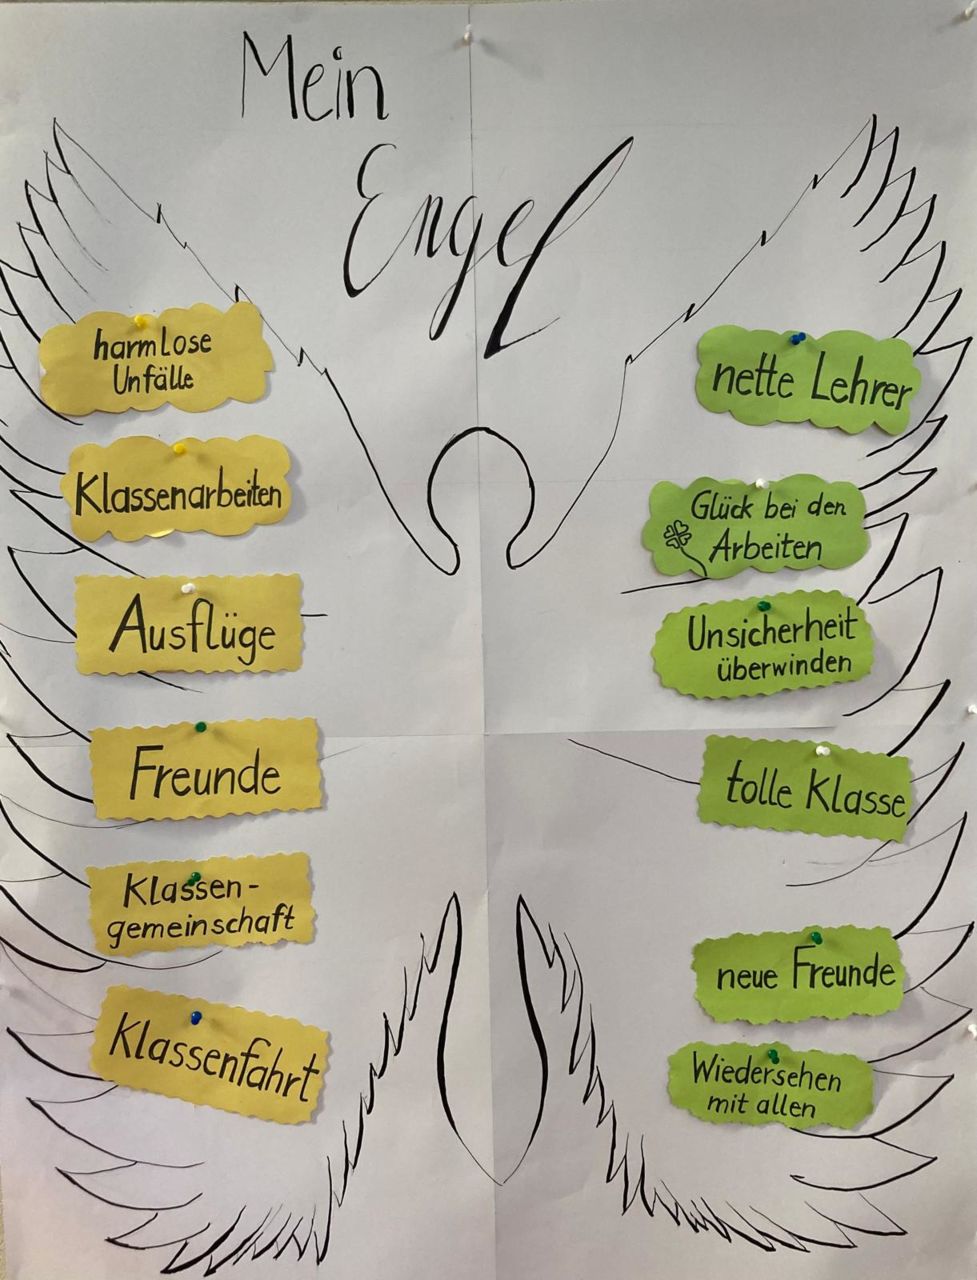 Mein
Engel
harmlose
Unfälle
Klassenarbeiten
Ausflüge
Freunde
Klassen-
gemeinschaft
Klassenfahrt
nette Lehrer
Glück bei den
Arbeiten
Unsicherheit
überwinden
tolle Klasse
neue Freunde
Wiedersehen
mit allen